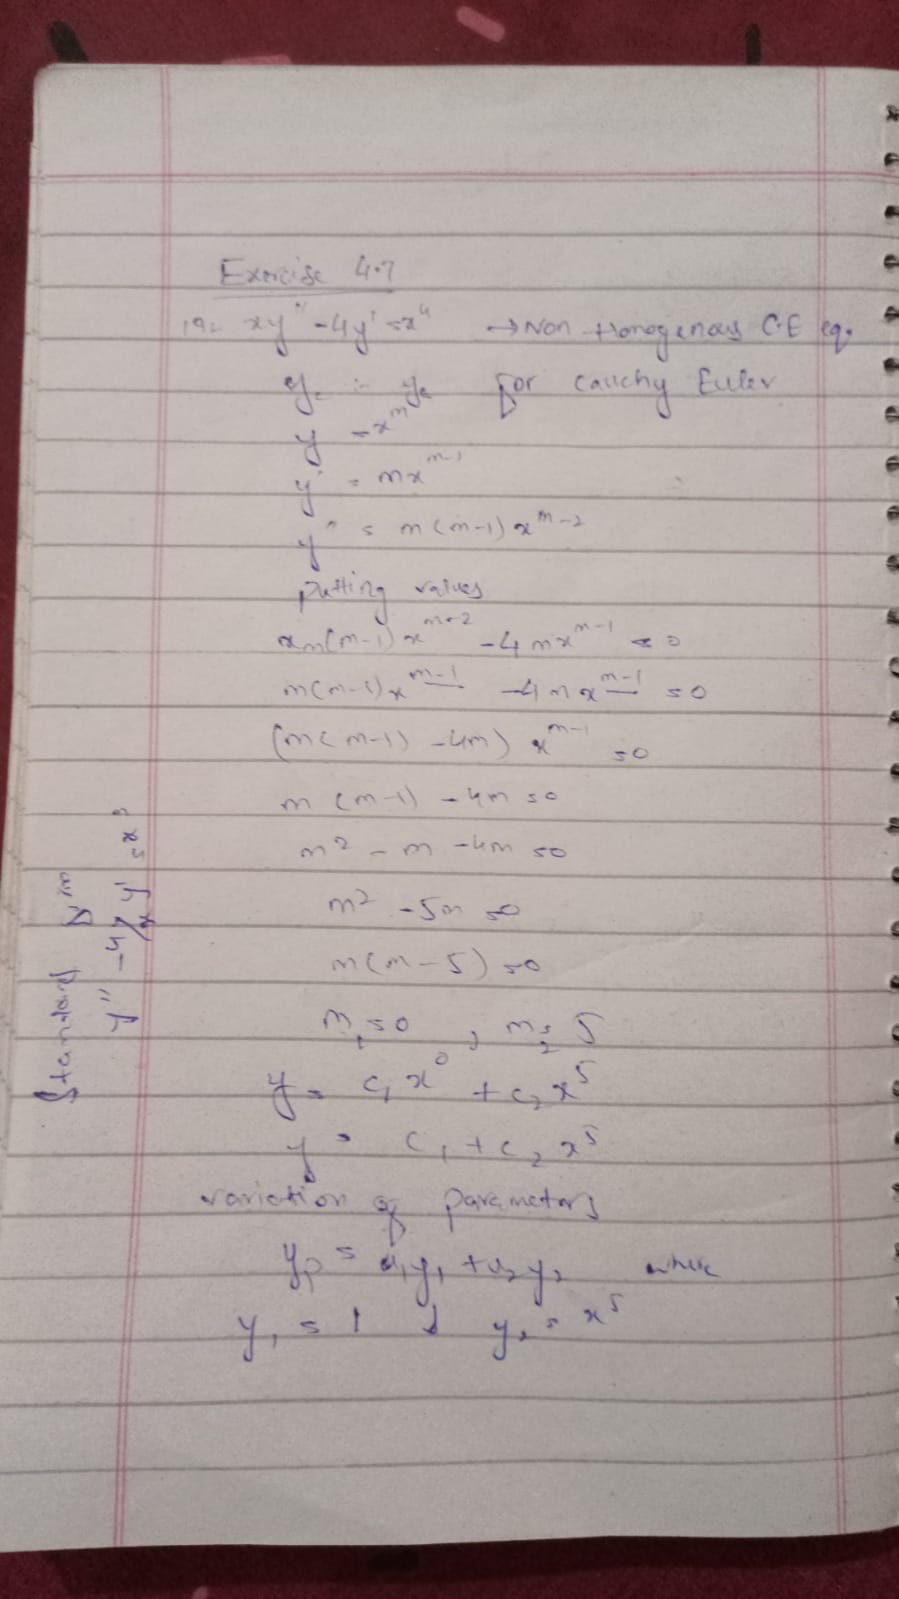 Exercise 4.7
19- xy'' - 4y' = x⁴ → Non Homogenous C.E eq.
for cauchy Euler
y = x^m
y' = mx^(m-1)
y'' = m(m-1)x^(m-2)
putting values
xm(m-1)x^(m-2) - 4mx^(m-1) = 0
m(m-1)x^(m-1) - 4mx^(m-1) = 0
(m(m-1) - 4m) x^(m-1) = 0
m(m-1) - 4m = 0
m² - m - 4m = 0
m² - 5m = 0
m(m-5) = 0
m₁ = 0 , m₂ = 5
y = c₁x⁰ + c₂x⁵
y = c₁ + c₂x⁵
variation of parameters
yp = u₁y₁ + u₂y₂ where
y₁ = 1 & y₂ = x⁵
Standard
y'' - 4/x y' = x³